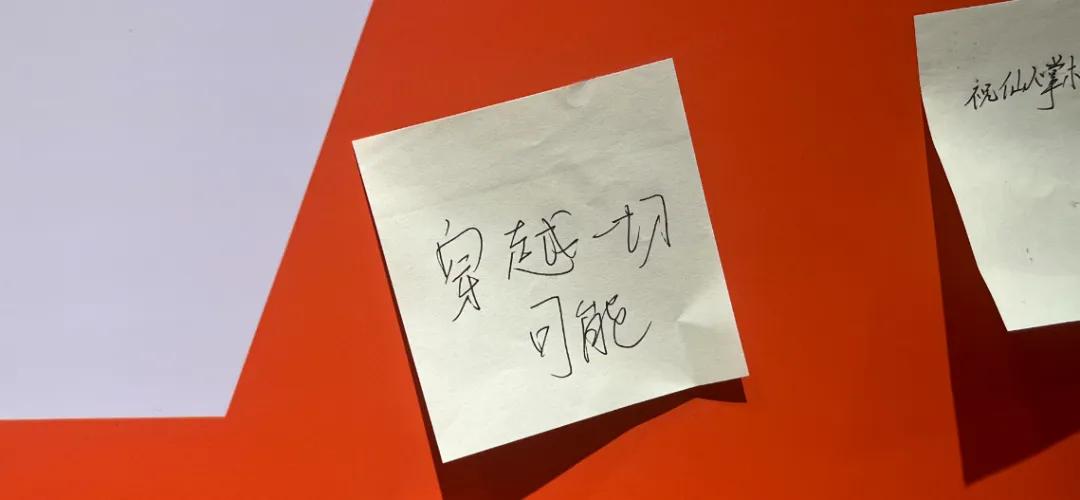 穿越一切
可能
祝仙人掌